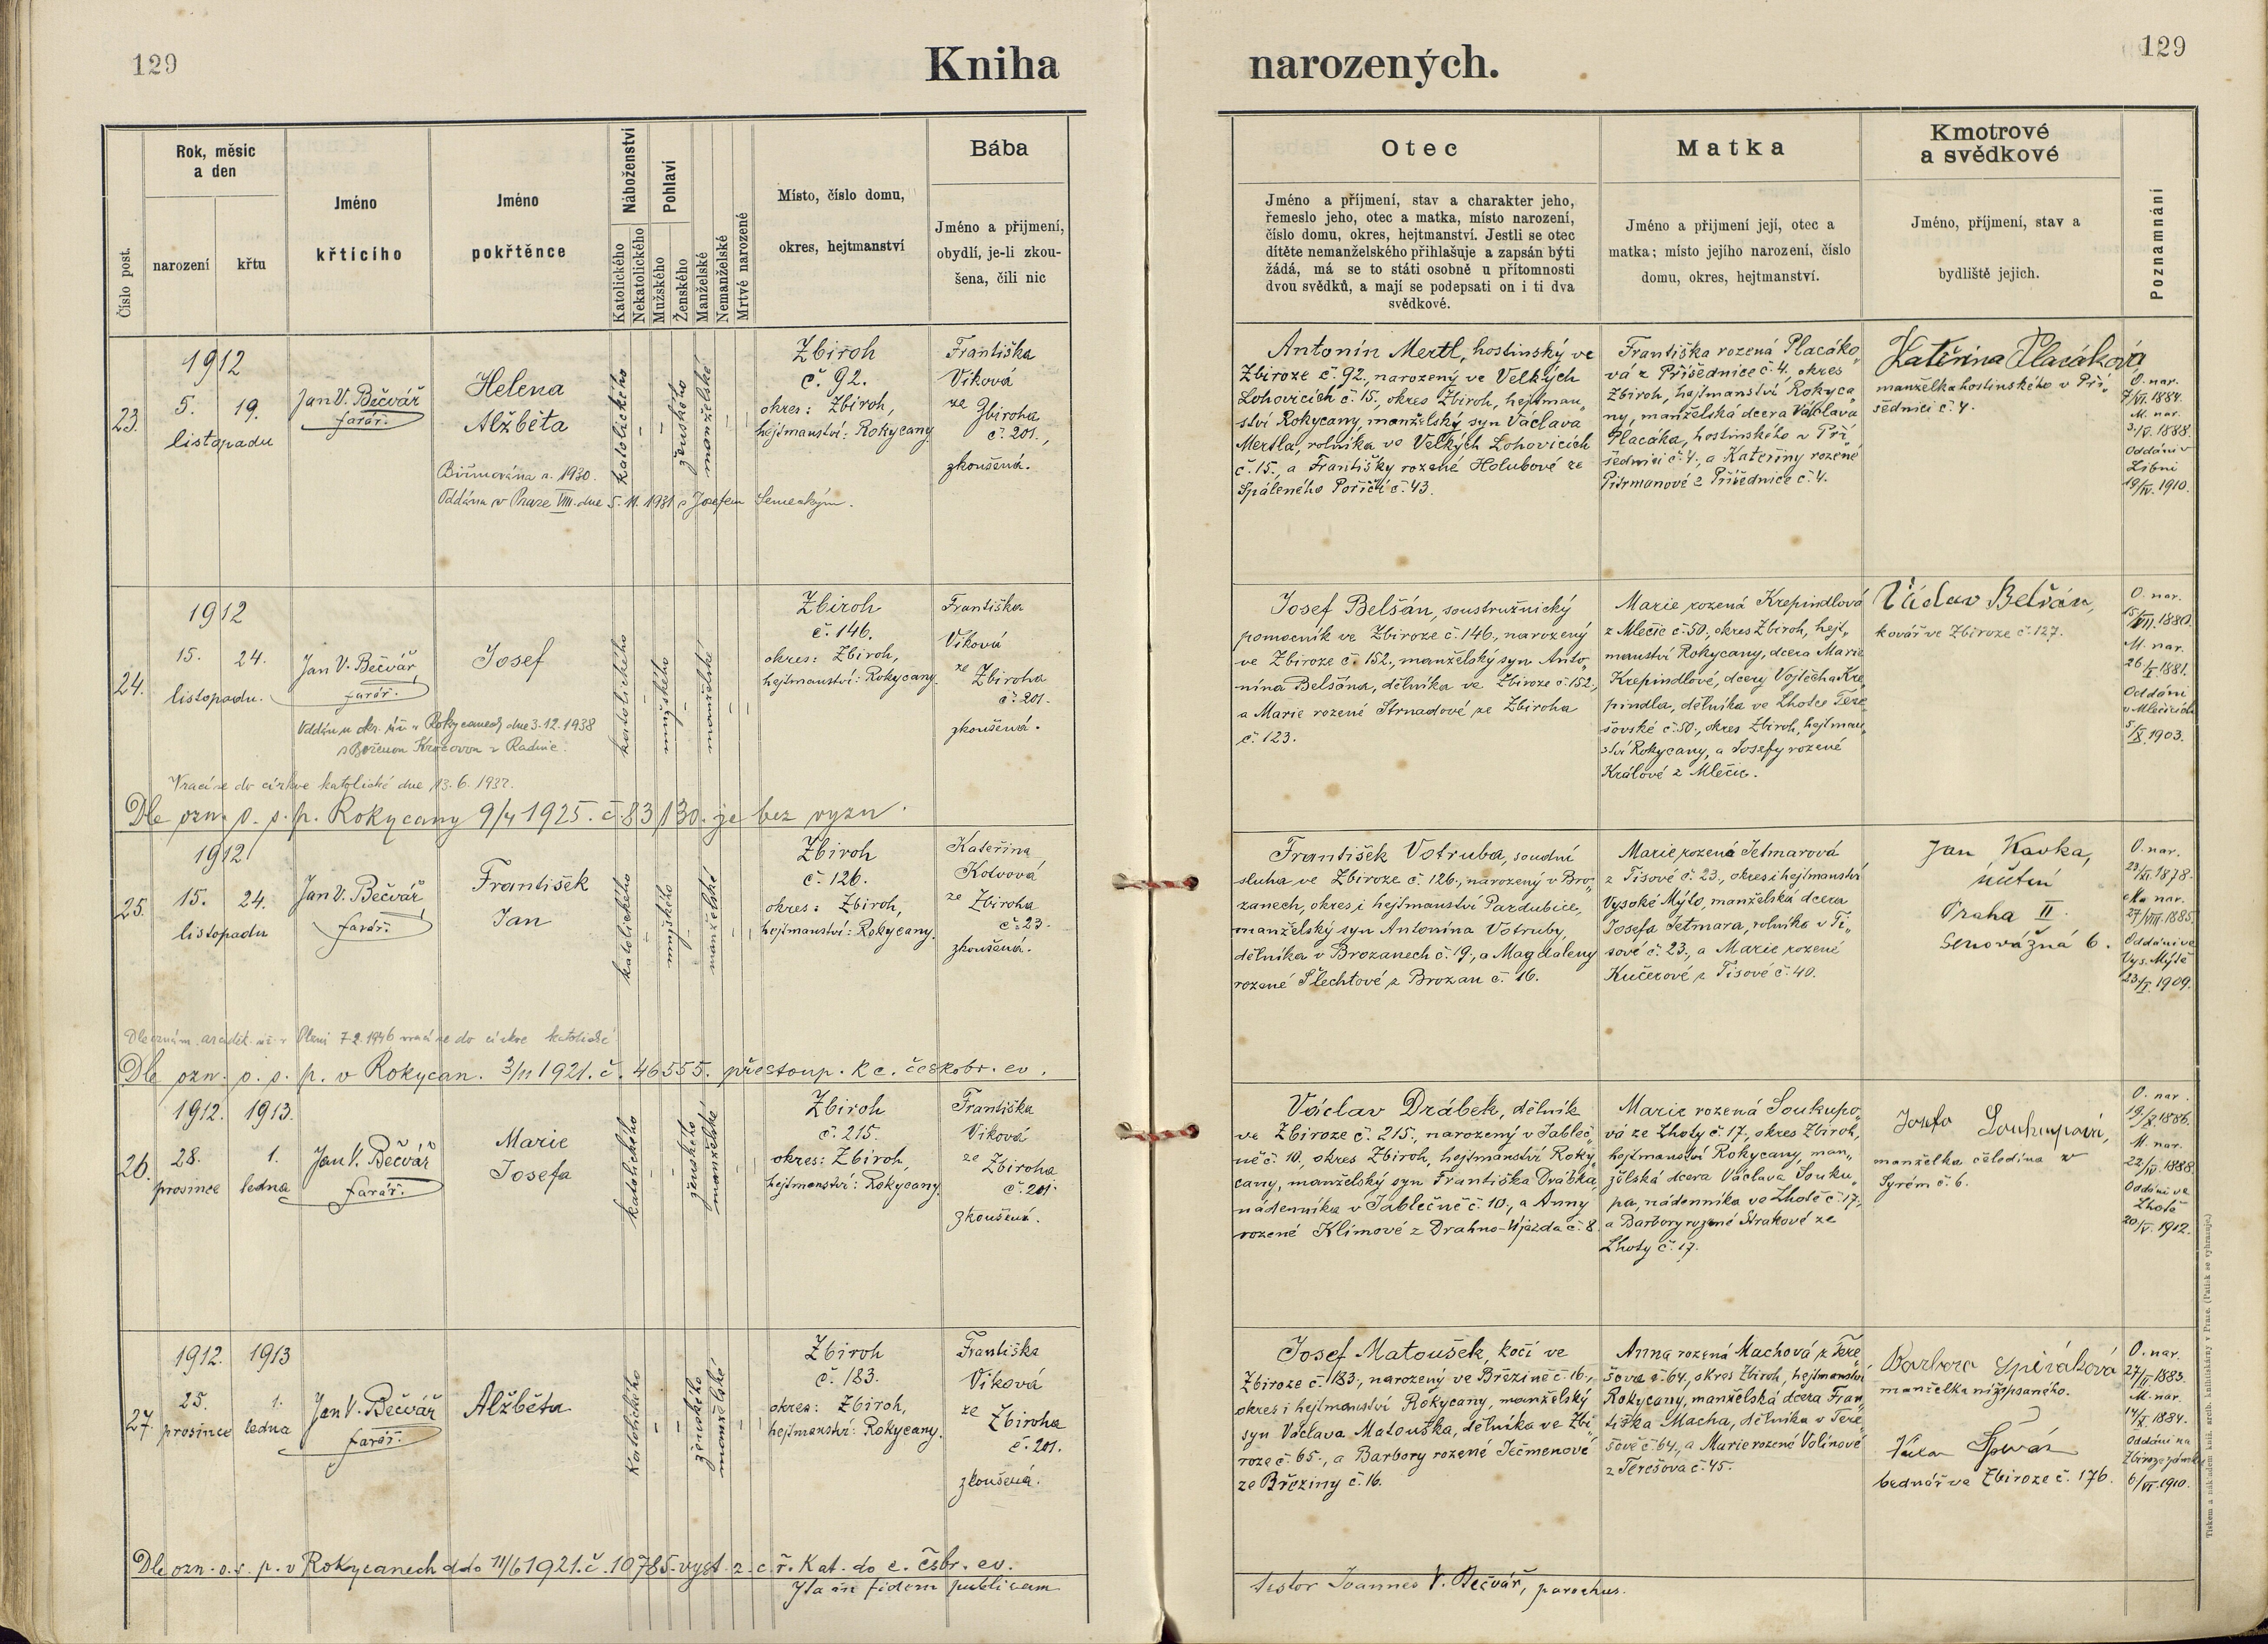 129
Kniha
narozených.
129
Číslo post.
Rok, měsíc
a den
narození
křtu
Jméno
křtícího
Jméno
pokřtěnce
Náboženství
Katolického
Nekatolického
Pohlaví
Mužského
Ženského
Manželské
Nemanželské
Mrtvé narozené
Místo, číslo domu,
okres, hejtmanství
Bába
Jméno a příjmení,
obydlí, je-li zkou-
šena, čili nic
Otec
Jméno a příjmení, stav a charakter jeho,
řemeslo jeho, otec a matka, místo narození,
číslo domu, okres, hejtmanství. Jestli se otec
dítěte nemanželského přihlašuje a zapsán býti
žádá, má se to státi osobně u přítomnosti
dvou svědků, a mají se podepsati on i ti dva
svědkové.
Matka
Jméno a přijmení její, otec a
matka; místo jejího narození, číslo
domu, okres, hejtmanství.
Kmotrové
a svědkové
Jméno, příjmení, stav a
bydliště jejich.
Poznamnání
23.
1912
5. 19.
listopadu
Jan V. Bečvář
farář.
Helena
Alžběta
Biřmována a. 1930.
Oddána v Praze VIII. dne 5. 11. 1931 s Josefem Semeckým.
katolického
ženského
manželské
Zbiroh
č. 92.
okres: Zbiroh,
hejtmanství: Rokycany
Františka
Viková
ze Zbiroha
č. 201.,
zkoušená.
Antonín Mertl, hostinský ve
Zbiroze č. 92., narozený ve Velkých
Lohovicích č. 15., okres Zbiroh, hejtman„
ství Rokycany, manželský syn Václava
Mertla, rolníka ve Velkých Lohovicích
č. 15., a Františky rozené Holubové ze
Spáleného Poříčí č. 43.
Františka rozená Placáko„
vá z Příšednice č. 4. okres
Zbiroh, hejtmanství Rokyca„
ny, manželská dcera Václava
Placáka, hostinského v Pří„
šednici č. 4., a Kateřiny rozené
z Příšednice č. 4.
Kateřina Placáková
manželka hostinského v Pří„
šednici č. 4.
O. nar.
1884.
M. nar.
1888.
Oddáni v
Libni
19/IV. 1910.
24.
1912
15. 24.
listopadu.
Jan V. Bečvář
farář.
Josef
Oddán u okr. úř. v Rokycanech dne 3.12.1938
s Boženou z Radnic.
Vrací se do církve katolické dne 13. 6. 1932.
Dle ozn. o. s. p. Rokycany 9/4 1925. č. 83130. je bez vyzn.
katolického
mužského
manželské
Zbiroh
č. 146.
okres: Zbiroh,
hejtmanství: Rokycany.
Františka
Viková
ze Zbiroha
č. 201.
zkoušená.
Josef Belšán, soustružnický
pomocník ve Zbiroze č. 146., narozený
ve Zbiroze č. 152., manželský syn Anto„
nína Belšána, dělníka ve Zbiroze č. 152.,
a Marie rozené Strnadové ze Zbiroha
č. 123.
Marie rozená Krepindlová
z Mlečic č. 50., okres Zbiroh, hejt„
manství Rokycany, dcera Marie
Krepindlové, dcery Vojtěcha Kre„
pindla, dělníka ve Lhotce Tere„
šovské č. 50., okres Zbiroh, hejtman„
ství Rokycany, a Josefy rozené
Králové z Mlečic.
Václav Belšán,
kovář ve Zbiroze č. 127.
O. nar.
1880.
M. nar.
26/I. 1881.
Oddáni
v Mlečicích
5/X. 1903.
25.
1912
15. 24.
listopadu
Jan V. Bečvář
farář.
František
Jan
Dle oznám. v Plzni 7.2.1946 vrací se do církve katolické
Dle ozn. o. s. p. v Rokycan. 3/11 1921. č. 46555. přestoup. k c. českobr. ev.
katolického
mužského
manželské
Zbiroh
č. 126.
okres: Zbiroh,
hejtmanství: Rokycany.
Kateřina
Kotvová
ze Zbiroha
č. 23.
zkoušená.
František Votruba, soudní
sluha ve Zbiroze č. 126., narozený v Bro„
zanech, okres i hejtmanství Pardubice,
manželský syn Antonína Votruby,
dělníka v Brozanech č. 19., a Magdaleny
rozené Šlechtové z Brozan č. 16.
Marie rozená Jetmarová
z Tisové č. 23., okres i hejtmanství
Vysoké Mýto, manželská dcera
Josefa Jetmara, rolníka v Ti„
sové č. 23., a Marie rozené
Kučerové z Tisové č. 40.
Jan Kavka,
Praha II.
Senovážná 6.
O. nar.
1878.
M. nar.
27/VIII. 1885.
Oddáni ve
Vys. Mýtě
1909.
26.
1912. 1913.
28. 1.
prosince ledna
Jan V. Bečvář
farář.
Marie
Josefa
katolického
ženského
manželské
Zbiroh
č. 215.
okres: Zbiroh,
hejtmanství: Rokycany.
Františka
Viková
ze Zbiroha
č. 201.
zkoušená.
Václav Drábek, dělník
ve Zbiroze č. 215., narozený v Jableč„
ně č. 10., okres Zbiroh, hejtmanství Roky„
cany, manželský syn Františka Drábka,
nádenníka v Jablečně č. 10., a Anny
rozené Klímové z Drahno-Újezda č. 8.
Marie rozená Soukupo„
vá ze Lhoty č. 17., okres Zbiroh,
hejtmanství Rokycany, man„
želská dcera Václava Souku„
pa, nádenníka ve Lhotě č. 17.,
a Barbory rozené Strakové ze
Lhoty č. 17.
Josefa Soukupová,
manželka čeledína v
Syrém č. 6.
O. nar.
19/X. 1886.
M. nar.
22/IV. 1888.
Oddáni ve
Lhotě
20/V. 1912.
27.
1912. 1913
25. 1.
prosince ledna
Jan V. Bečvář
farář.
Alžběta
katolického
ženského
manželské
Zbiroh
č. 183.
okres: Zbiroh,
hejtmanství: Rokycany.
Františka
Viková
ze Zbiroha
č. 201.
zkoušená.
Josef Matoušek, kočí ve
Zbiroze č. 183., narozený ve Březině č. 16.,
okres i hejtmanství Rokycany, manželský
syn Václava Matouška, dělníka ve Zbi„
roze č. 65., a Barbory rozené Ječmenové
ze Březiny č. 16.
Anna rozená Machová z Tere„
šova č. 64., okres Zbiroh, hejtmanství
Rokycany, manželská dcera Fran„
tiška Macha, dělníka v Tere„
šově č. 64., a Marie rozené Volínové
z Terešova č. 45.
Barbora Spěváková
manželka nížepsaného.
bednář ve Zbiroze č. 176.
O. nar.
1883.
M. nar.
14/X. 1884.
Oddáni na
Zbiroze zámku
6/VI. 1910.
Dle ozn. o. s. p. v Rokycanech ddo 11/6 1921. č. 10785. vyst. z c. ř. kat. do c. čsbr. ev.
Ita in fidem publicam
testor Joannes V. Bečvář, parochus.
Tiskem a nákladem kníž. arcib. knihtiskárny v Praze. (Patisk se vyhrazuje.)